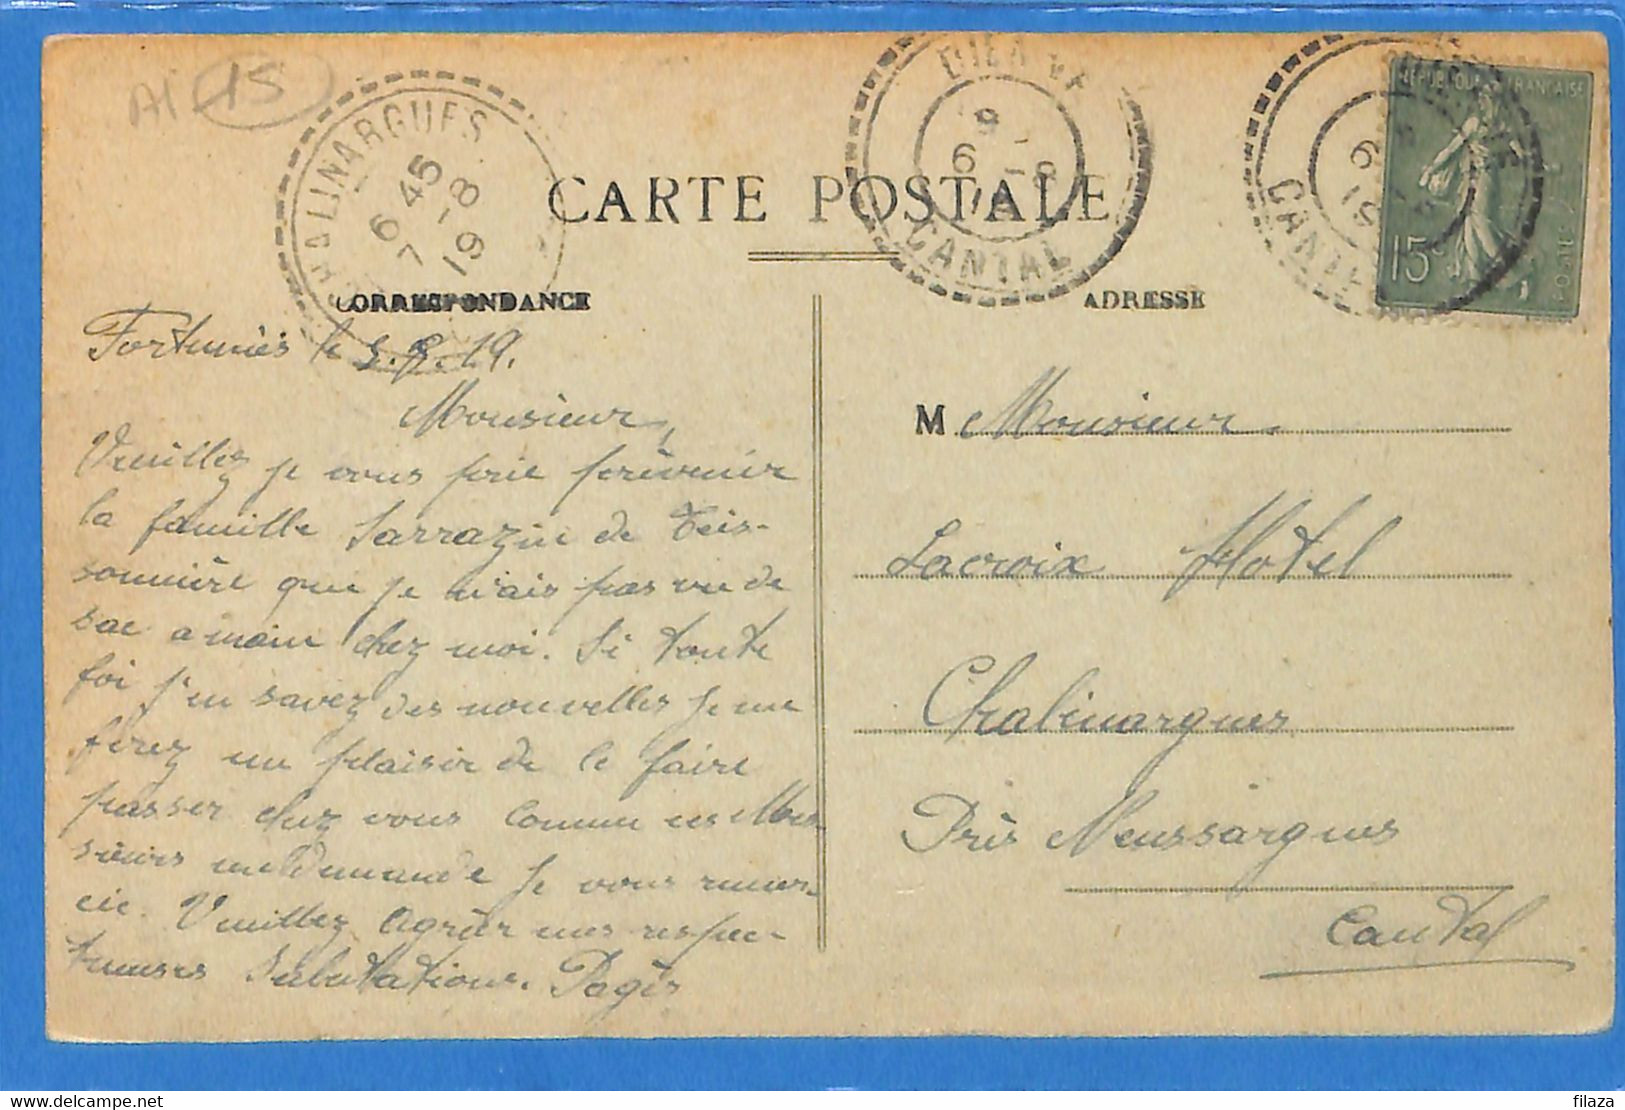 A1 15
CHALINARGUES
6 45
7 -8
19
DIENNE
9
6 -8
19
CANTAL
9
6 -8
19
CANTAL
REPUBLIQUE FRANCAISE
15c
POSTES
CARTE POSTALE
CORRESPONDANCE
ADRESSE
Fortuniès le 5.8.19.
Monsieur,
Veuillez je vous prie prèvenir
la famille Sarrazin de Teis-
sonnière que je n'ais pas vu de
sac a main chez moi. Si toute
foi j'en savez des nouvelles je me
ferez un plaisir de le faire
passer chez vous comme ces Mes-
sieurs me demande je vous remer-
cie. Veuillez Agréer mes respec-
tueuses Salutations. Pagès
M Monsieur.
Lacroix Hotel
Chalinargues
Près Neussargues
Cantal
filaza